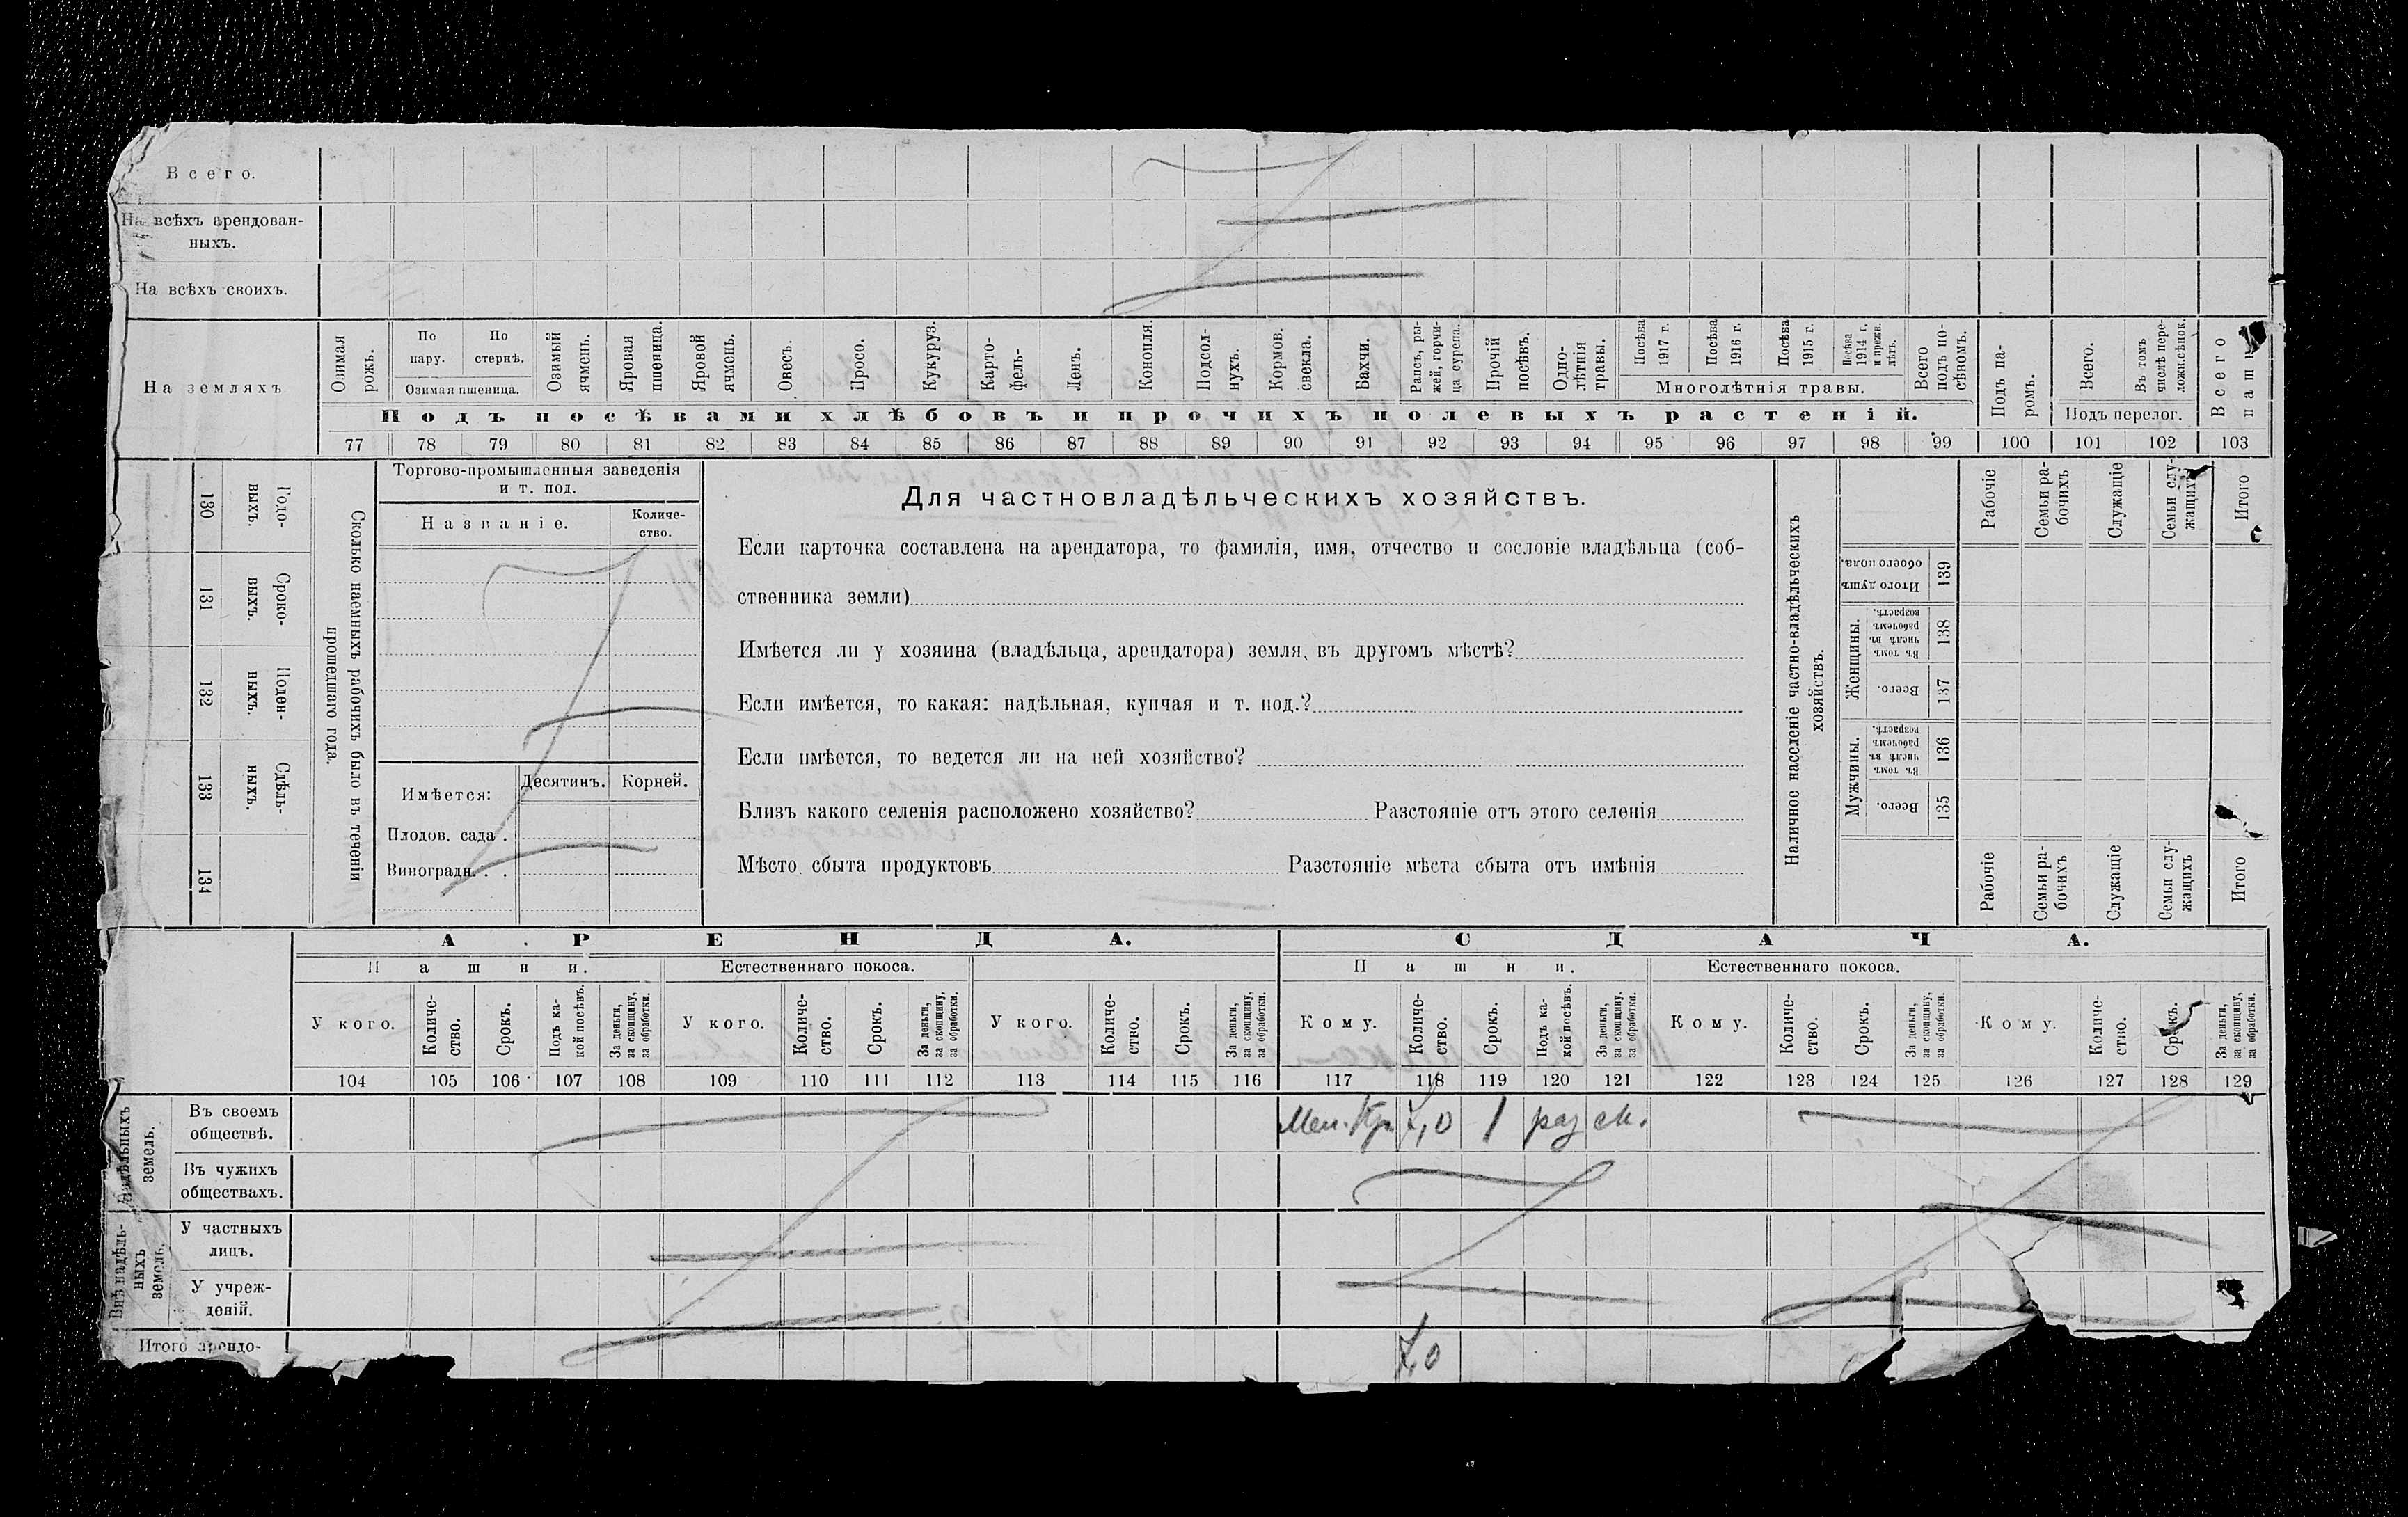 Всего.
На всѣхъ арендован-
ныхъ.
На всѣхъ своихъ.
На земляхъ
Озимая рожь.
По пару.
По стернѣ.
Озимая пшеница.
Озимый ячмень.
Яровая пшеница.
Яровой ячмень.
Овесъ.
Просо.
Кукуруз.
Карто-
фель-
Ленъ.
Конопля.
Подсол-
нухъ.
Кормов.
свекла.
Бахчи.
Рапсъ, ры-
жей, горчи-
ца сурепа.
Прочій
посѣвъ.
Одно-
лѣтнія
травы.
Посѣва
1917 г.
Посѣва
1916 г.
Посѣва
1915 г.
Посѣва
1914 г.
и прежн.
лѣтъ.
Многолѣтнія травы.
Всего
подъ по-
сѣвомъ.
Подъ па-
ромъ.
Всего.
Въ томъ
числѣ пере-
ложн.сѣнок.
Подъ перелог.
Всего
пашн
Подъ посѣвами хлѣбовъ и прочихъ полевыхъ растеній.
77 78 79 80 81 82 83 84 85 86 87 88 89 90 91 92 93 94 95 96 97 98 99 100 101 102 103
130
Годо-
выхъ.
131
Сроко-
выхъ.
132
Поден-
ныхъ.
133
Сдѣль-
ныхъ.
134
Сколько наемныхъ рабочихъ было въ теченіи
прошедшаго года.
Торгово-промышленныя заведенія
и т. под.
Названіе.
Количе-
ство.
Имѣется:
Десятинъ.
Корней.
Плодов. сада .
Виноградн. . .
Для частновладѣльческихъ хозяйствъ.
Если карточка составлена на арендатора, то фамилія, имя, отчество и сословіе владѣльца (соб-
ственника земли)
Имѣется ли у хозяина (владѣльца, арендатора) земля, въ другомъ мѣстѣ?
Если имѣется, то какая: надѣльная, купчая и т. под.?
Если имѣется, то ведется ли на ней хозяйство?
Близъ какого селенія расположено хозяйство? Разстояніе отъ этого селенія
Мѣсто сбыта продуктовъ Разстояніе мѣста сбыта отъ имѣнія
Наличное населеніе частно-владѣльческихъ
хозяйствъ.
Рабочіе
Семьи ра-
бочихъ
Служащіе
Семьи слу-
жащихъ
Итого
Итого душъ
обоего пола.
139
Женщины.
Въ томъ
числѣ въ
рабочемъ
возрастѣ.
138
Всего.
137
Мужчины.
Въ томъ
числѣ въ
рабочемъ
возрастѣ.
136
Всего.
135
Рабочіе
Семьи ра-
бочихъ
Служащіе
Семьи слу-
жащихъ
Итого
АРЕНДА.
СДАЧА.
Пашни.
Естественнаго покоса.
Пашни.
Естественнаго покоса.
У кого.
Количе-
ство.
Срокъ.
Подъ ка-
кой посѣвъ.
За деньги,
за скопщину,
за обработки.
У кого.
Количе-
ство.
Срокъ.
За деньги,
за скопщину,
за обработки.
У кого.
Количе-
ство.
Срокъ.
За деньги,
за скопщину,
за обработки.
Кому.
Количе-
ство.
Срокъ.
Подъ ка-
кой посѣвъ.
За деньги,
за скопщину,
за обработки.
Кому.
Количе-
ство.
Срокъ.
За деньги,
за скопщину,
за обработки.
Кому.
Количе-
ство.
Срокъ.
За деньги,
за скопщину,
за обработки.
104 105 106 107 108 109 110 111 112 113 114 115 116 117 118 119 120 121 122 123 124 125 126 127 128 129
Надѣльныхъ
земель.
Въ своемъ
обществѣ.
7,0 1 раз
Въ чужихъ
обществахъ.
Внѣ надѣль-
ныхъ
земель.
У частныхъ
лицъ.
У учреж-
деній.
Итого арендо-
7,0